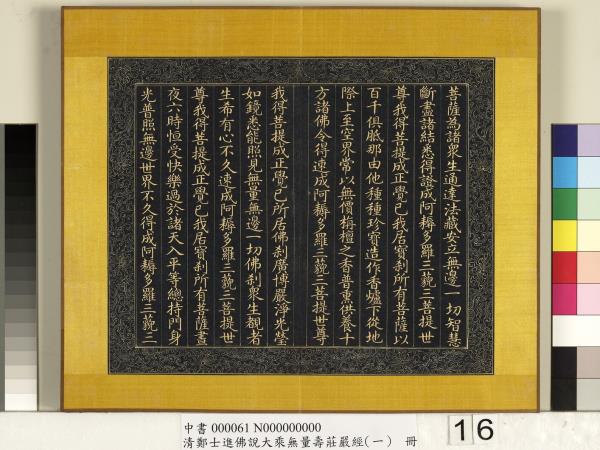 菩薩為諸衆生通達法藏安立無邊一切智慧
斷盡諸結悉得證成阿耨多羅三藐三菩提世
尊我得菩提成正覺已我居寶刹所有菩薩以
百千俱胝那由他種種珍寶造作香爐下從地
際上至空界常以無價栴檀之香普熏供養十
方諸佛令得速成阿耨多羅三藐三菩提世尊
我得菩提成正覺已所居佛刹廣博嚴淨光瑩
如鏡悉能照見無量無邊一切佛刹衆生覩者
生希有心不久速成阿耨多羅三藐三菩提世
尊我得菩提成正覺已我居寶刹所有菩薩晝
夜六時恒受快樂過於諸天入平等總持門身
光普照無邊世界不久得成阿耨多羅三藐三
中書 000061 N000000000
清鄭士進佛說大乘無量壽莊嚴經(一) 冊
16